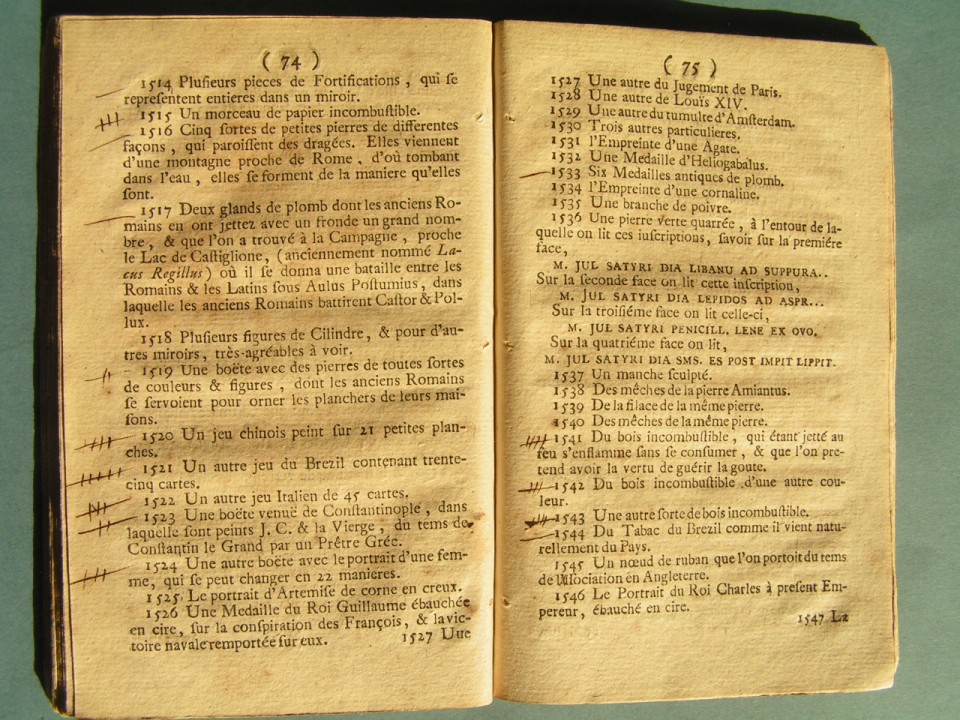 ( 74 )
1514 Plusieurs pieces de Fortifications, qui se
representent entieres dans un miroir.
1515 Un morceau de papier incombustible.
1516 Cinq sortes de petites pierres de differentes
façons, qui paroissent des dragées. Elles viennent
d'une montagne proche de Rome, d'où tombant
dans l'eau, elles se forment de la maniere qu'elles
sont.
1517 Deux glands de plomb dont les anciens Ro-
mains en ont jettez avec un fronde un grand nom-
bre, & que l'on a trouvé à la Campagne, proche
le Lac de Castiglione, (anciennement nommé La-
cus Regillus) où il se donna une bataille entre les
Romains & les Latins sous Aulus Postumius, dans
laquelle les anciens Romains battirent Castor & Pol-
lux.
1518 Plusieurs figures de Cilindre, & pour d'au-
tres miroirs, très-agréables à voir.
1519 Une boëte avec des pierres de toutes sortes
de couleurs & figures, dont les anciens Romains
se servoient pour orner les planchers de leurs mai-
sons.
1520 Un jeu chinois peint sur 21 petites plan-
ches.
1521 Un autre jeu du Brezil contenant trente-
cinq cartes.
1522 Un autre jeu Italien de 45 cartes.
1523 Une boëte venuë de Constantinople, dans
laquelle sont peints J. C. & la Vierge, du tems de
Constantin le Grand par un Prêtre Gréc.
1524 Une autre boëte avec le portrait d'une fem-
me, qui se peut changer en 22 manieres.
1525. Le portrait d'Artemise de corne en creux.
1526 Une Medaille du Roi Guillaume ébauchée
en cire, sur la conspiration des François, & la vic-
toire navale remportée sur eux.
1527 Uue
( 75 )
1527 Une autre du Jugement de Paris.
1528 Une autre de Louis XIV.
1529 Une autre du tumulte d'Amsterdam.
1530 Trois autres particulieres.
1531 l'Empreinte d'une Agate.
1532 Une Medaille d'Heliogabalus.
1533 Six Medailles antiques de plomb.
1534 l'Empreinte d'une cornaline.
1535 Une branche de poivre.
1536 Une pierre verte quarrée, à l'entour de la-
quelle on lit ces iuscriptions, savoir sur la premiére
face,
M. JUL SATYRI DIA LIBANU AD SUPPURA..
Sur la seconde face on lit cette inscription,
M. JUL SATYRI DIA LEPIDOS AD ASPR...
Sur la troisiéme face on lit celle-ci,
M. JUL SATYRI PENICILL. LENE EX OVO.
Sur la quatriéme face on lit,
M. JUL SATYRI DIA SMS. ES POST IMPIT LIPPIT.
1537 Un manche sculpté.
1538 Des mêches de la pierre Amiantus.
1539 De la filace de la même pierre.
1540 Des mêches de la même pierre.
1541 Du bois incombustible, qui étant jetté au
feu s'enflamme sans se consumer, & que l'on pre-
tend avoir la vertu de guérir la goute.
1542 Du bois incombustible d'une autre cou-
leur.
1543 Une autre sorte de bois incombustible.
1544 Du Tabac du Brezil comme il vient natu-
rellement du Pays.
1545 Un nœud de ruban que l'on portoit du tems
de l'Association en Angleterre.
1546 Le Portrait du Roi Charles à present Em-
pereur, ébauché en cire.
1547 La